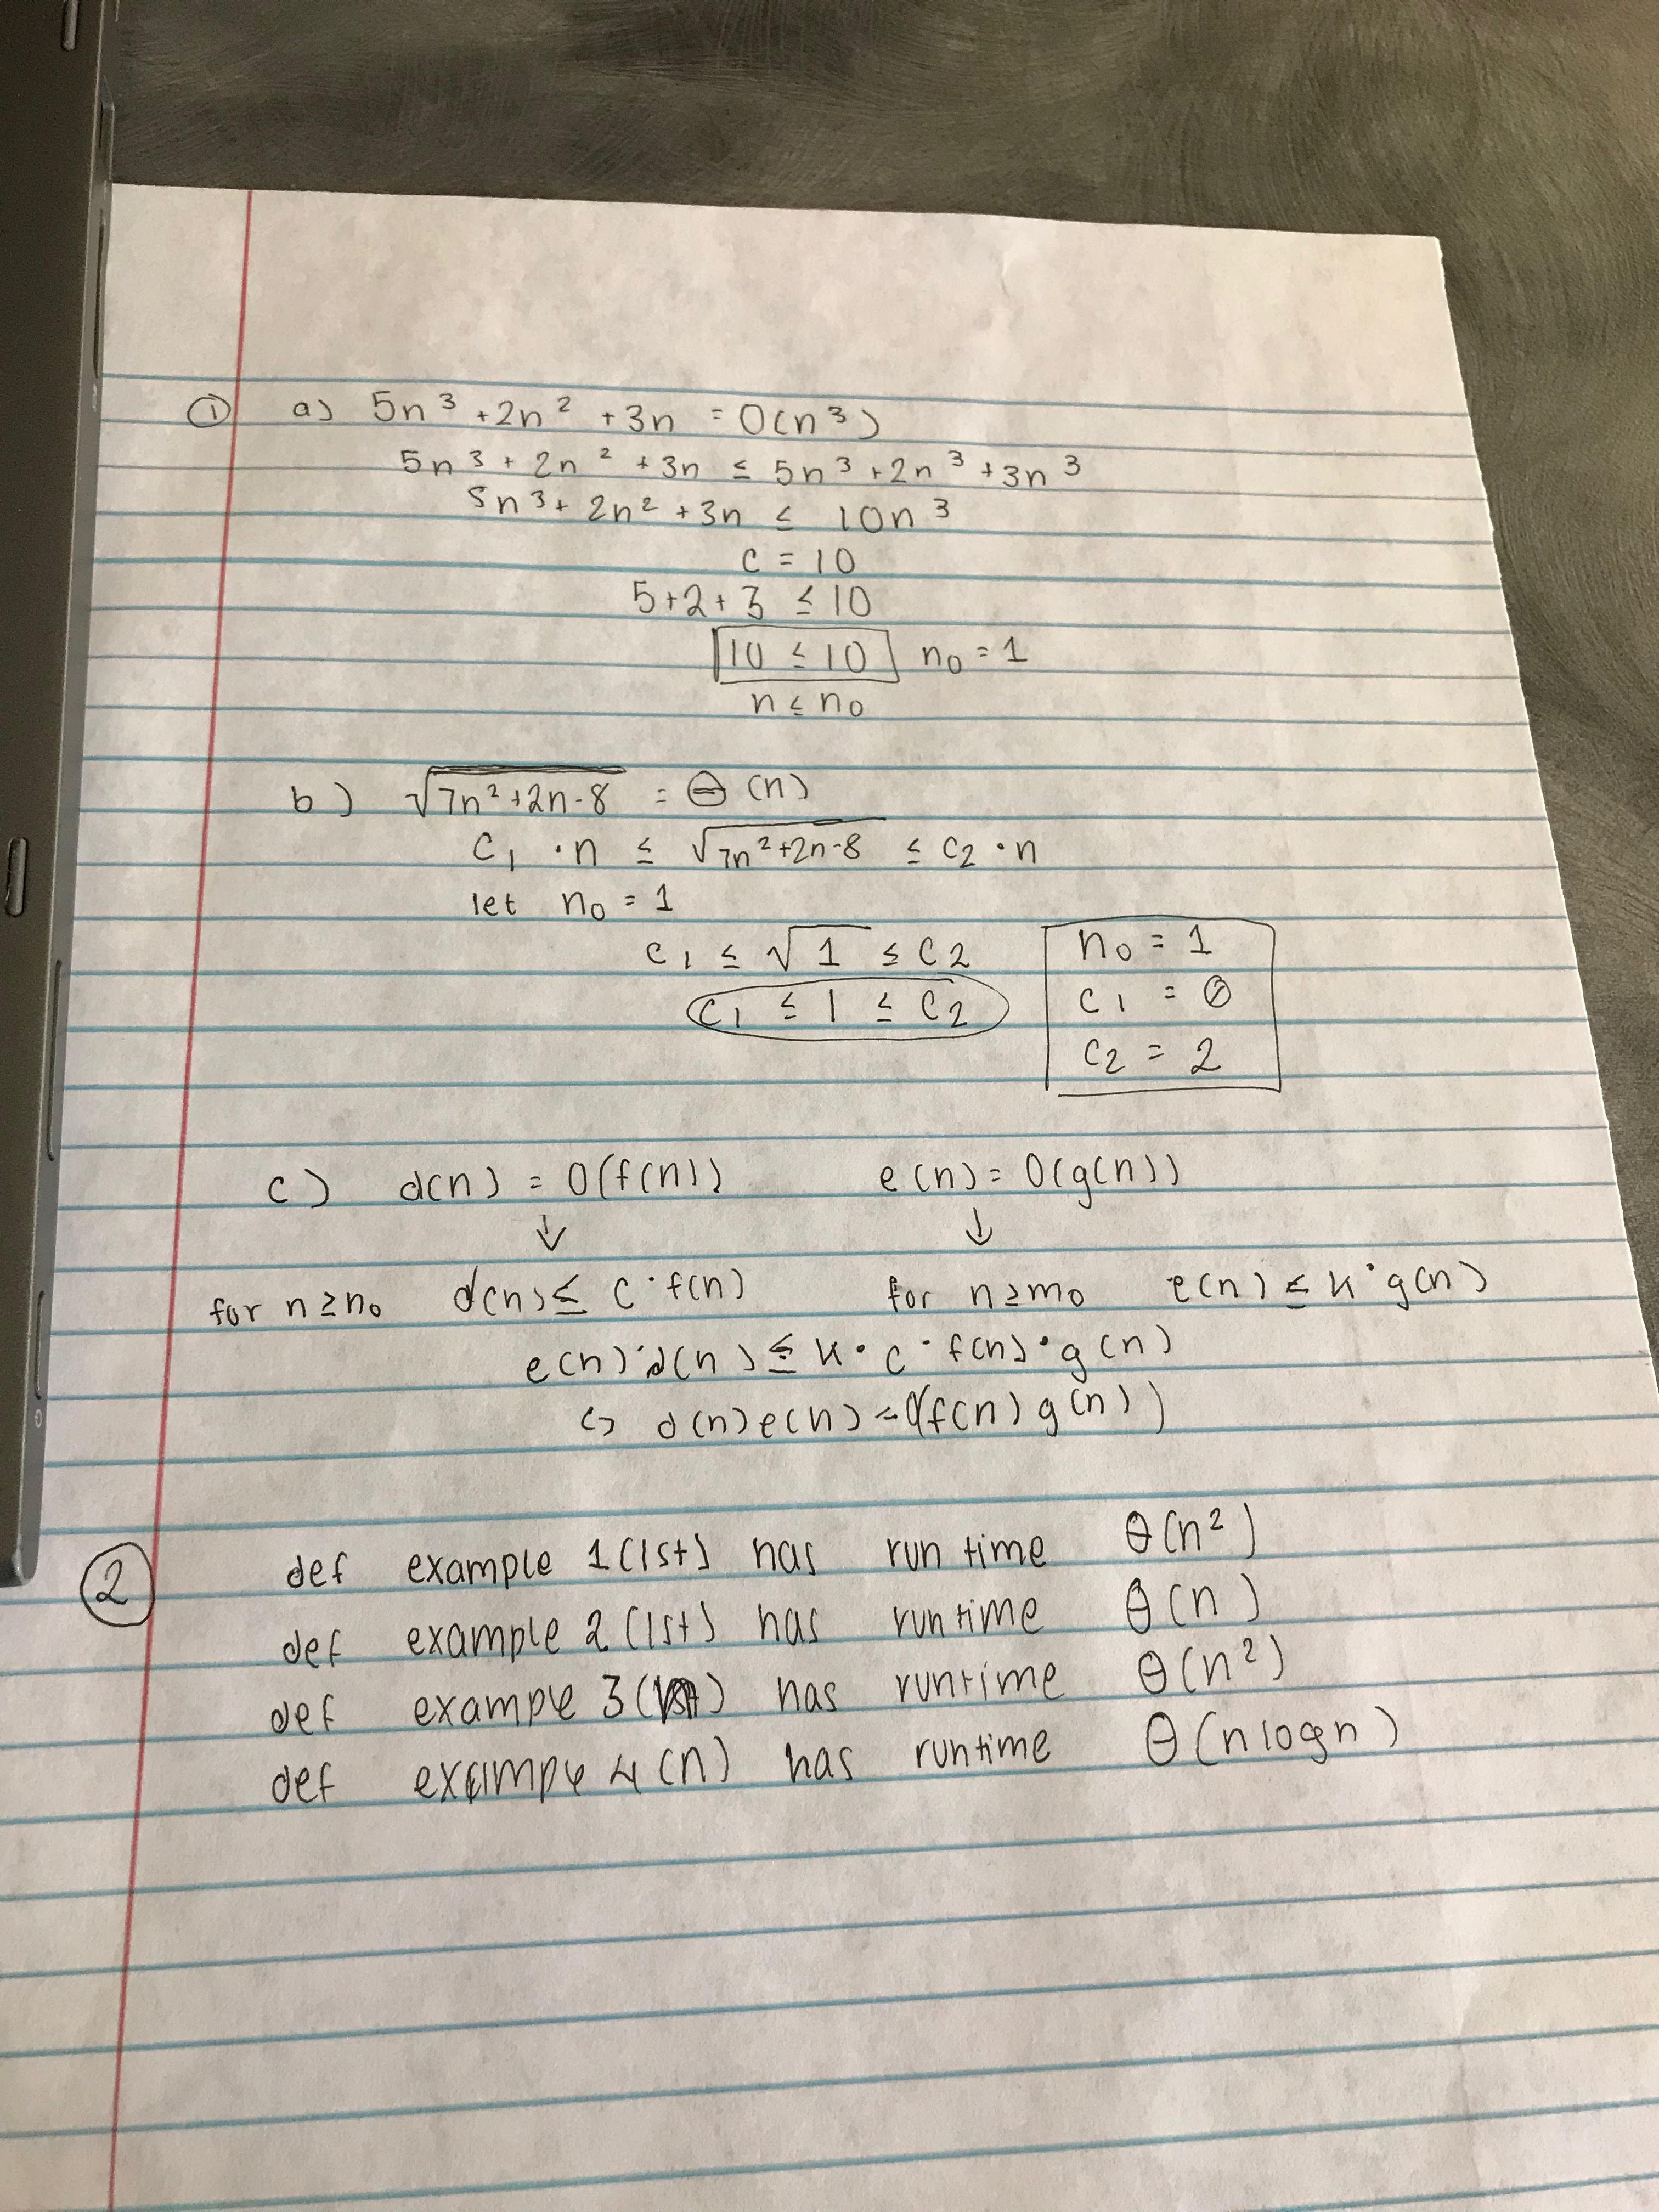 ① a) 5n³ + 2n² + 3n = O(n³)
5n³ + 2n² + 3n ≤ 5n³ + 2n³ + 3n³
5n³ + 2n² + 3n ≤ 10n³
c = 10
5+2+3 ≤ 10
10 ≤ 10 n₀ = 1
n ≤ n₀
b) √(7n²+2n-8) = Θ(n)
C₁ · n ≤ √(7n²+2n-8) ≤ C₂ · n
let n₀ = 1
C₁ ≤ √1 ≤ C₂ n₀ = 1
C₁ ≤ 1 ≤ C₂ C₁ = 0
C₂ = 2
c) d(n) = O(f(n)) e(n) = O(g(n))
↓ ↓
for n ≥ n₀ d(n) ≤ c · f(n) for n ≥ m₀ e(n) ≤ k · g(n)
e(n) · d(n) ≤ k · c · f(n) · g(n)
↪ d(n)e(n) = O(f(n)g(n))
② def example 1(lst) has run time θ(n²)
def example 2(lst) has runtime θ(n)
def example 3( ) has runtime θ(n²)
def example 4(n) has runtime θ(n logn)